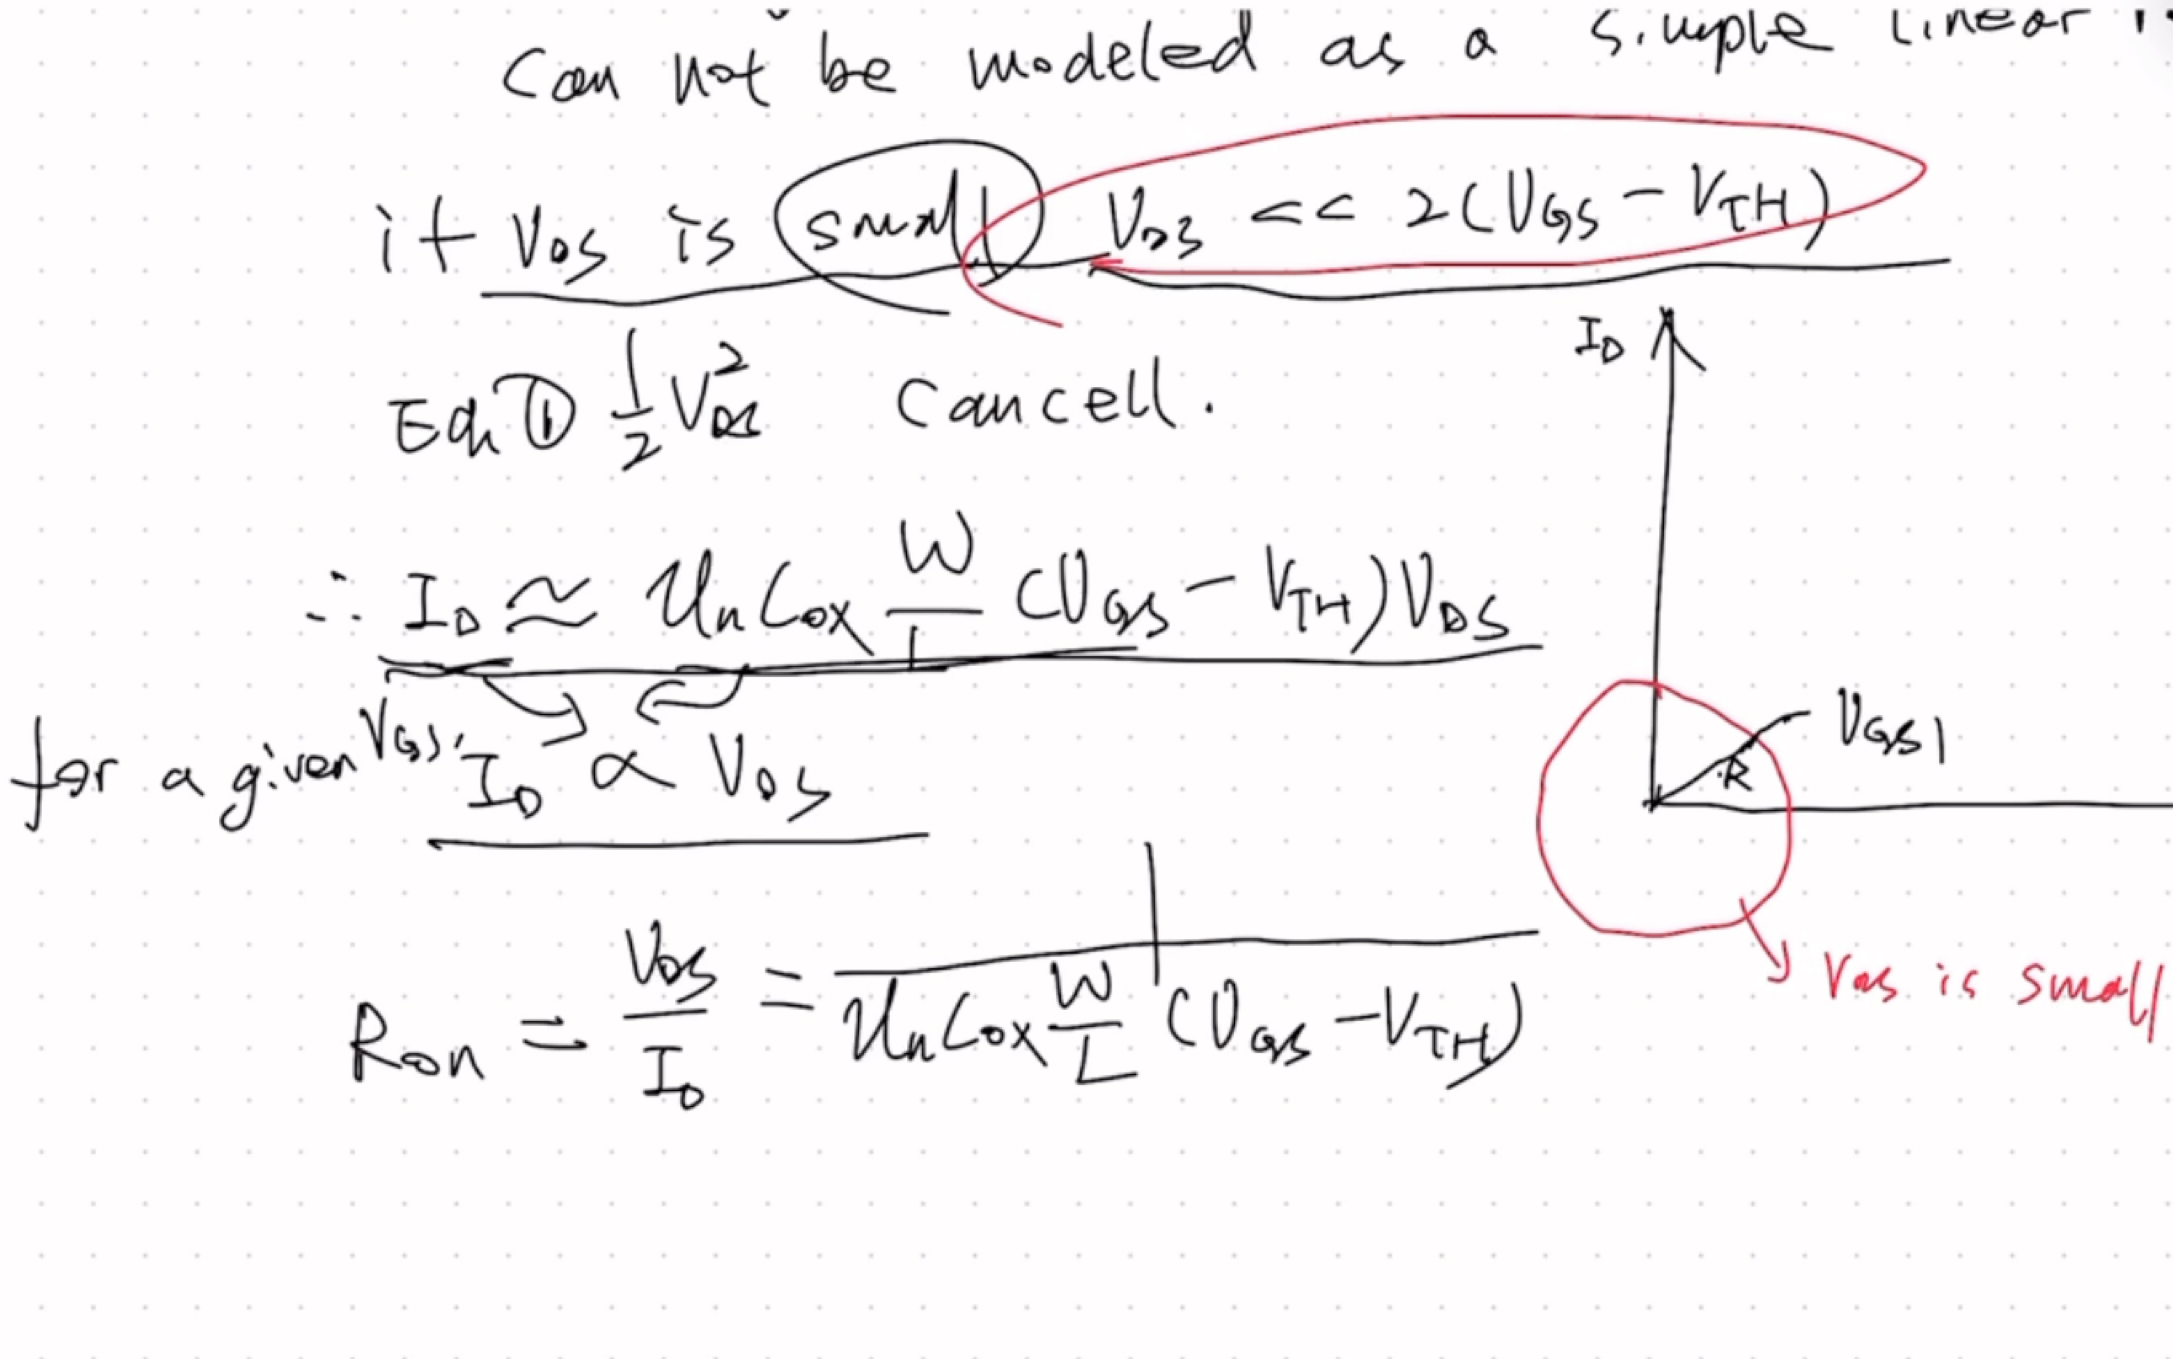 can not be modeled as a simple linear
if VDS is small VDS << 2(VGS - VTH)
Eqn ① 1/2 VDS² cancell.
∴ ID ≈ UnCox W/L (VGS - VTH)VDS
for a given VGS, ID ∝ VDS
Ron = VDS/ID = 1/(UnCox W/L (VGS - VTH))
ID
VGS1
R
VDS is small